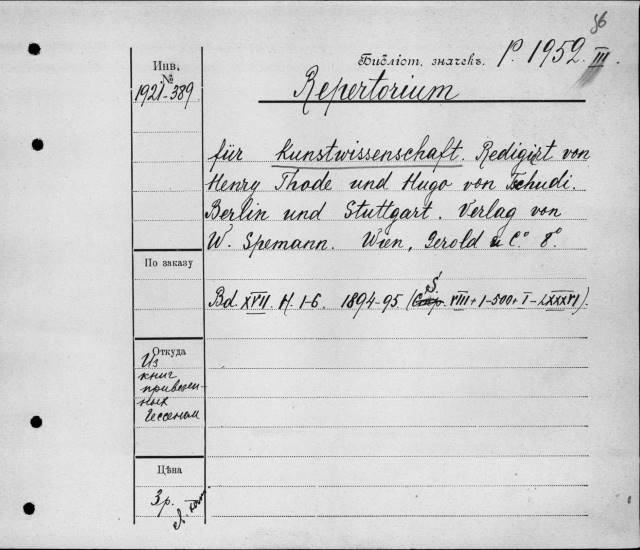 56
Библіот. значекъ. P. 1952 III.
Инв.
№
1921-389
Repertorium
für Kunstwissenschaft. Redigirt von
Henry Thode und Hugo von Tschudi.
Berlin und Stuttgart. Verlag von
W. Spemann. Wien, Gerold u C.° 8.°
По заказу
Bd. XVII. H. 1-6. 1894-95. (S. VIII + 1-500 + I-LXXXVI).
Откуда
Из
книг
привезен-
ных
Гессеном
Цѣна
3 р.